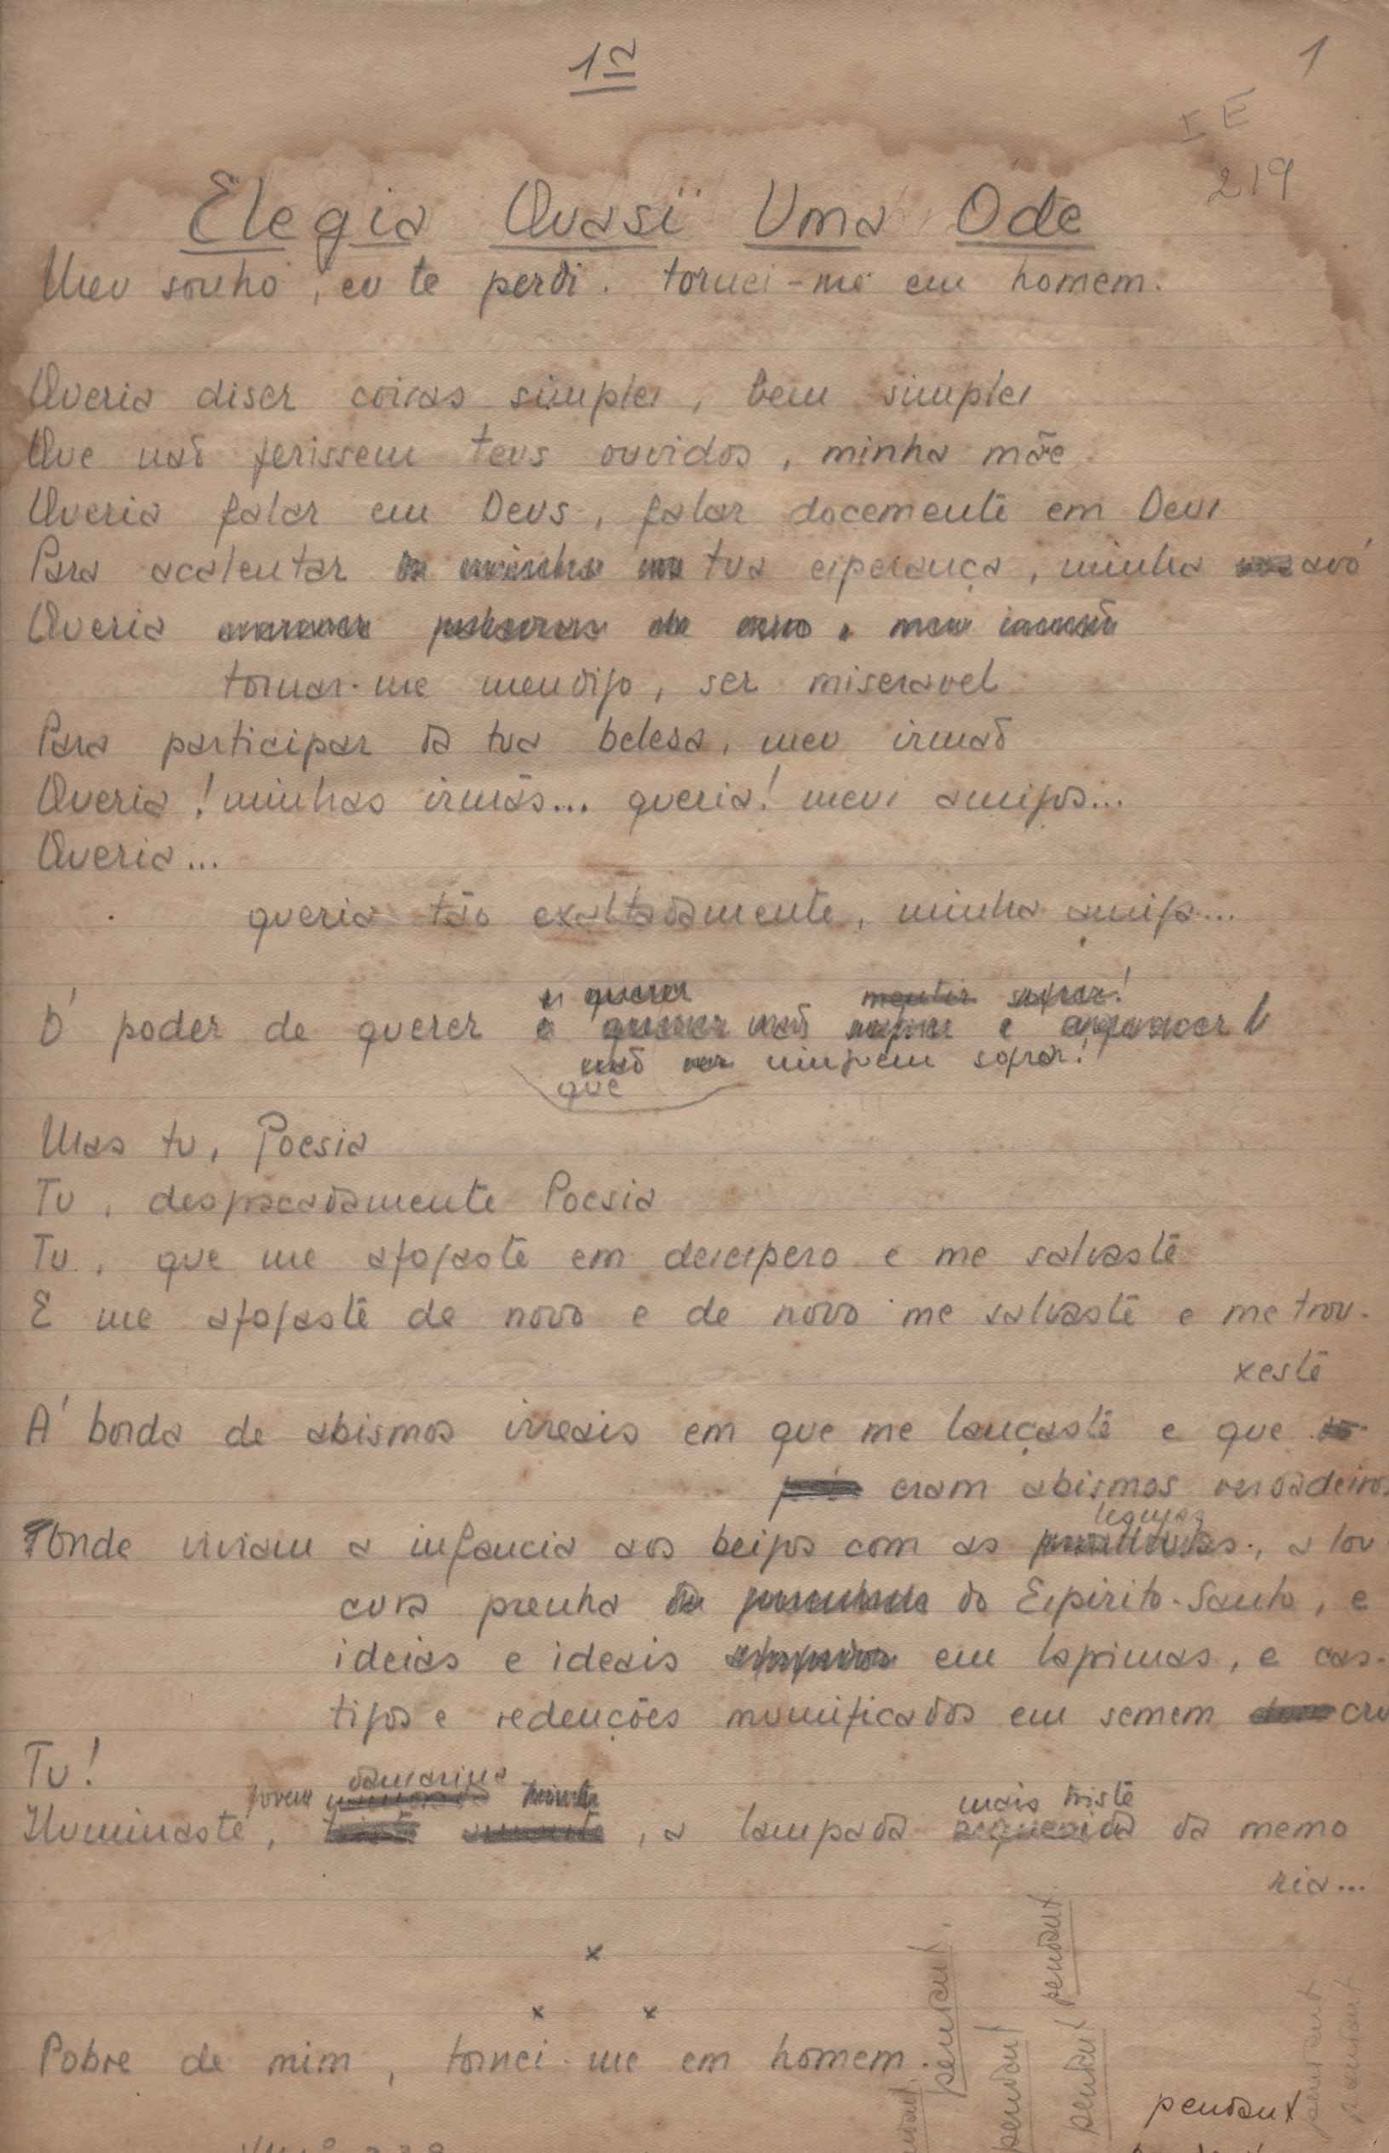 12
1
I E
219
Elegia Quasi Uma Ode
Meu sonho, eu te perdi. tornei-me em homem.
Queria diser coisas simples, bem simples
Que não ferissem teus ouvidos, minha mãe
Queria falar em Deus, falar docemente em Deus
Para acalentar a minha tua esperança, minha avó
Queria
tornar-me mendigo, ser miseravel
Para participar da tua belesa, meu irmão
Queria! minhas irmãs... queria! meus amigos...
Queria...
queria tão exaltadamente, minha amiga...
e querer mentir sofrer!
Ó poder de querer e querer não e
não ver ninguem sofrer!
que
Mas tu, Poesia
Tu, desgraçadamente Poesia
Tu, que me afogaste em desespero e me salvaste
E me afogaste de novo e de novo me salvaste e me trou-
xeste
Á borda de abismos irreais em que me lançaste e que
eram abismos verdadeiros
Onde viviam a infancia aos beijos com as , a lou
cura prenha do Espirito-Santo, e
ideias e ideais em lagrimas, e cas-
tigos e redenções mumificados em semem cru
Tu!
jovem dansarina
mais triste
Iluminaste, , a lampada da memo
ria...
x
x x
Pobre de mim, tornei-me em homem.
pendant
pendant
pendant
pendant
pendant
pendant
pendant